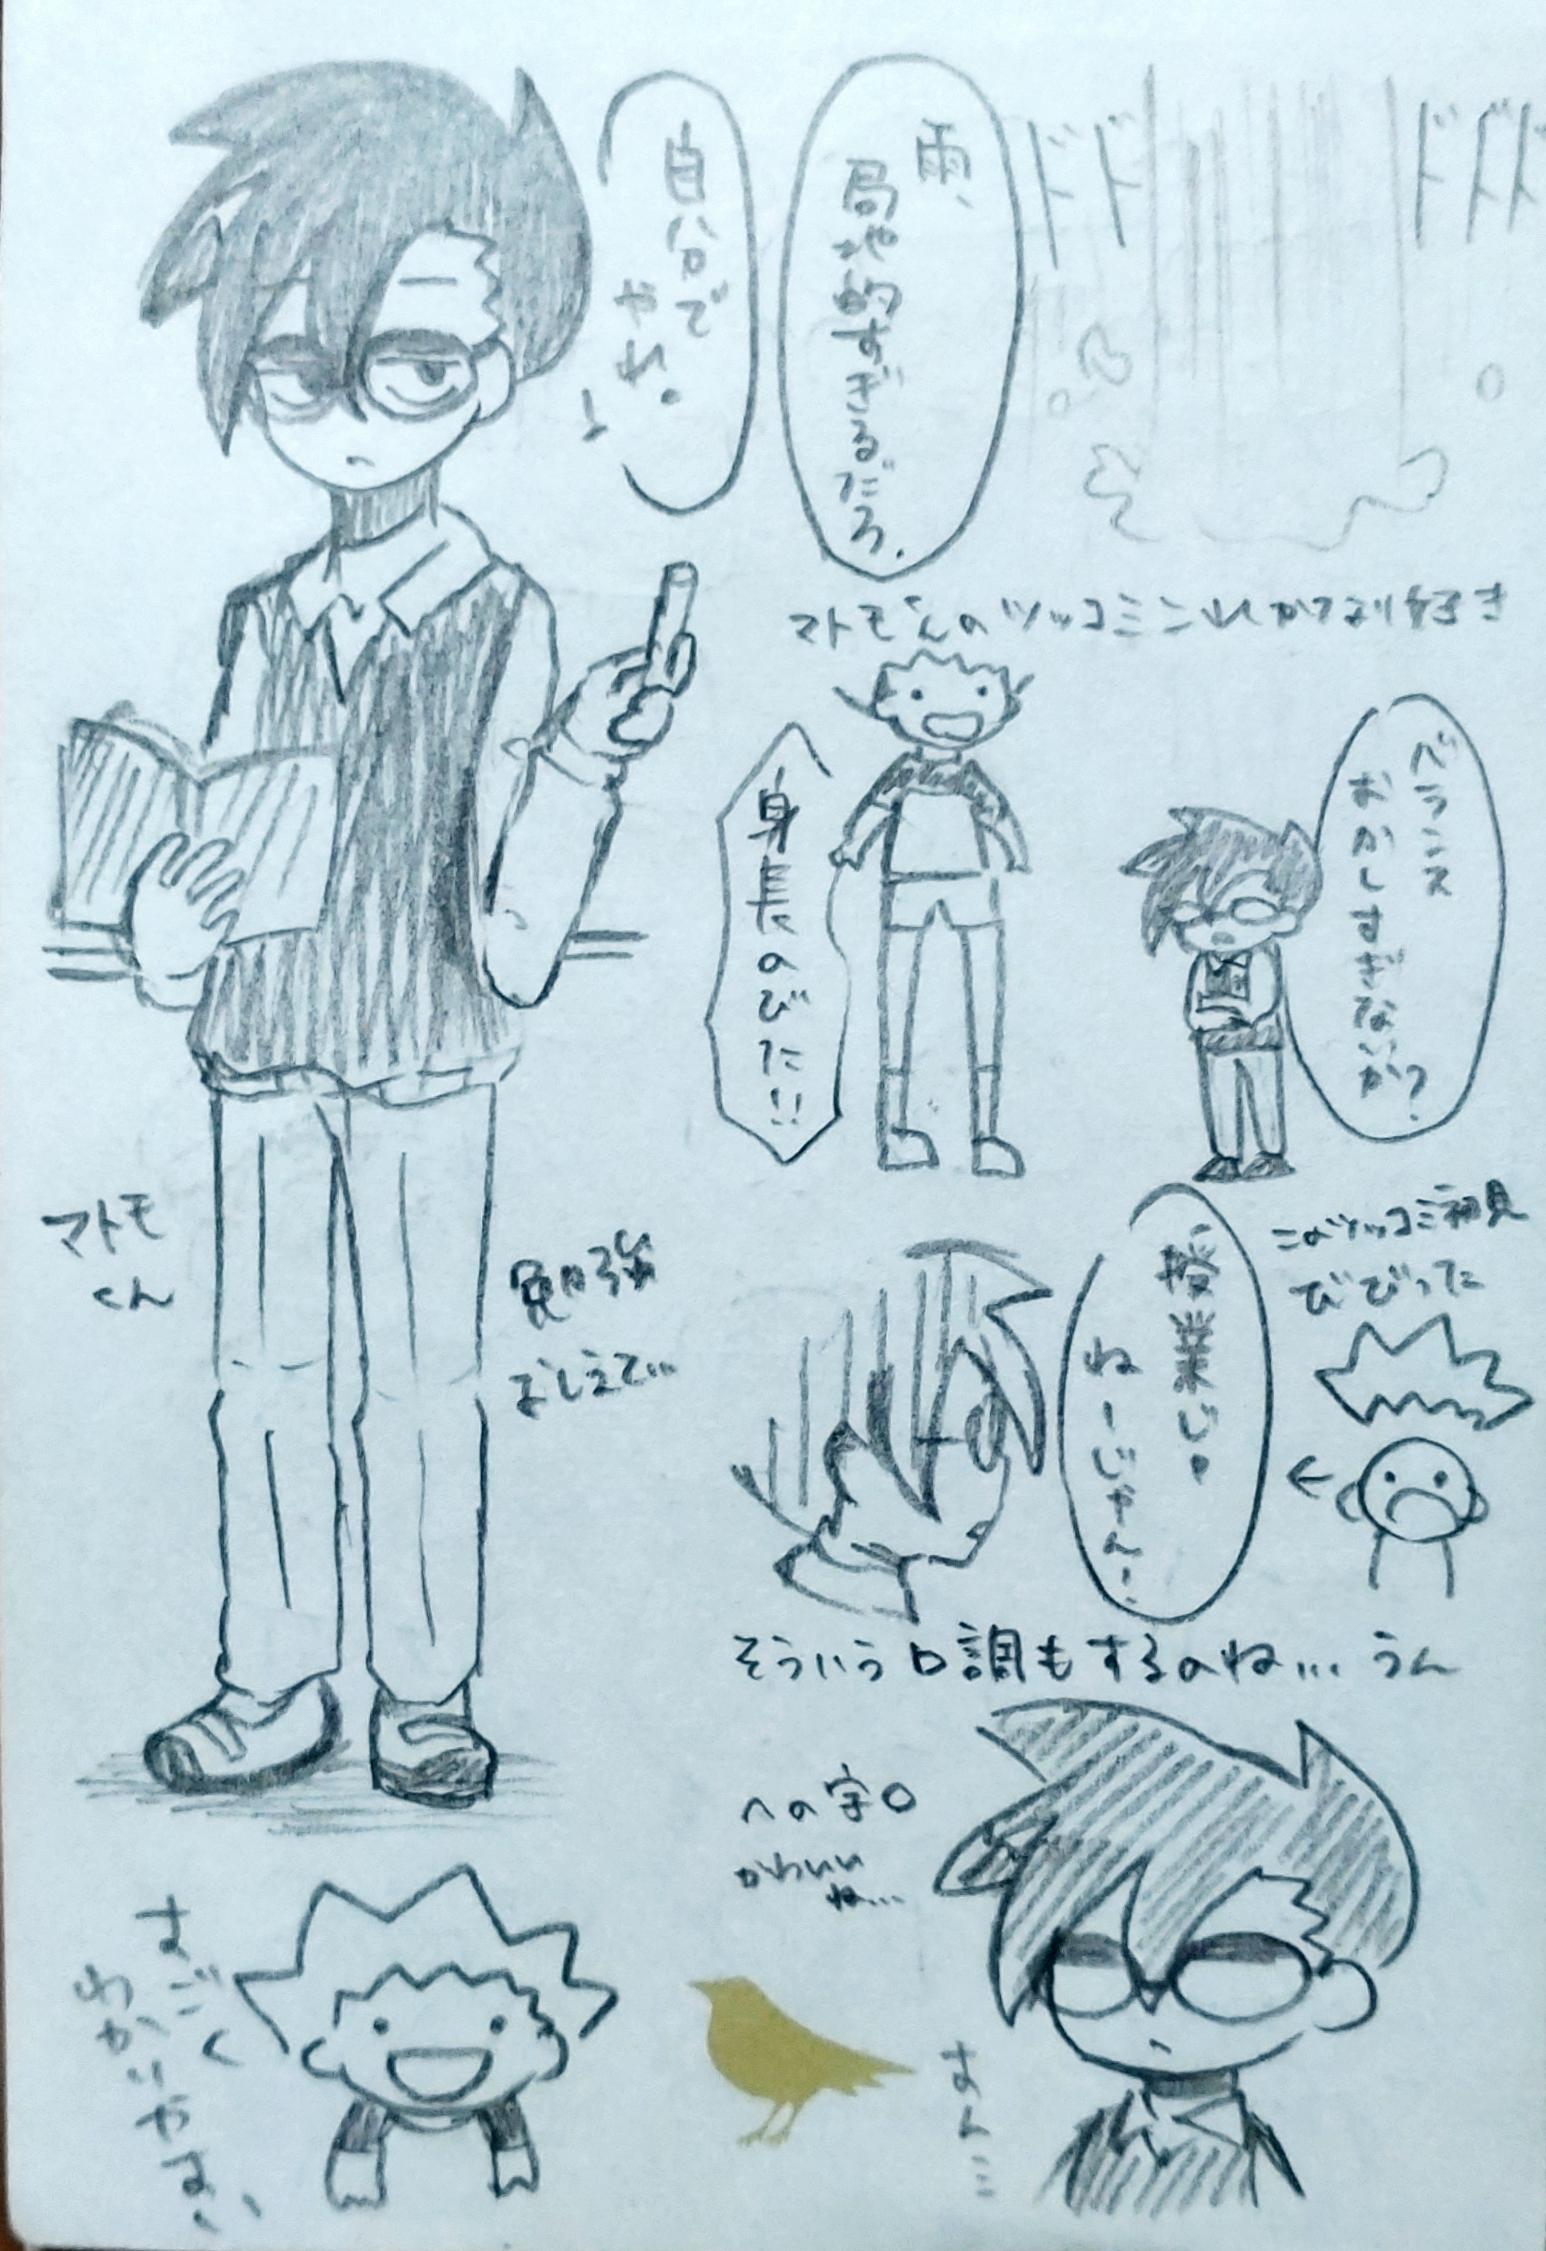 ドドド
ドド
雨、
局地的すぎるだろ.
自分で
やれ。
マトモくんのツッコミシリーズ
かなり好き
身長のびた!!
バランス
おかしすぎないか?
このツッコミ初見
びびった
授業じゃ
ねーじゃん
そういう口調もするのね…うん
マトモ
くん
勉強
おしえて…
への字口
かわいい
ね…
すごく
わかりやすい